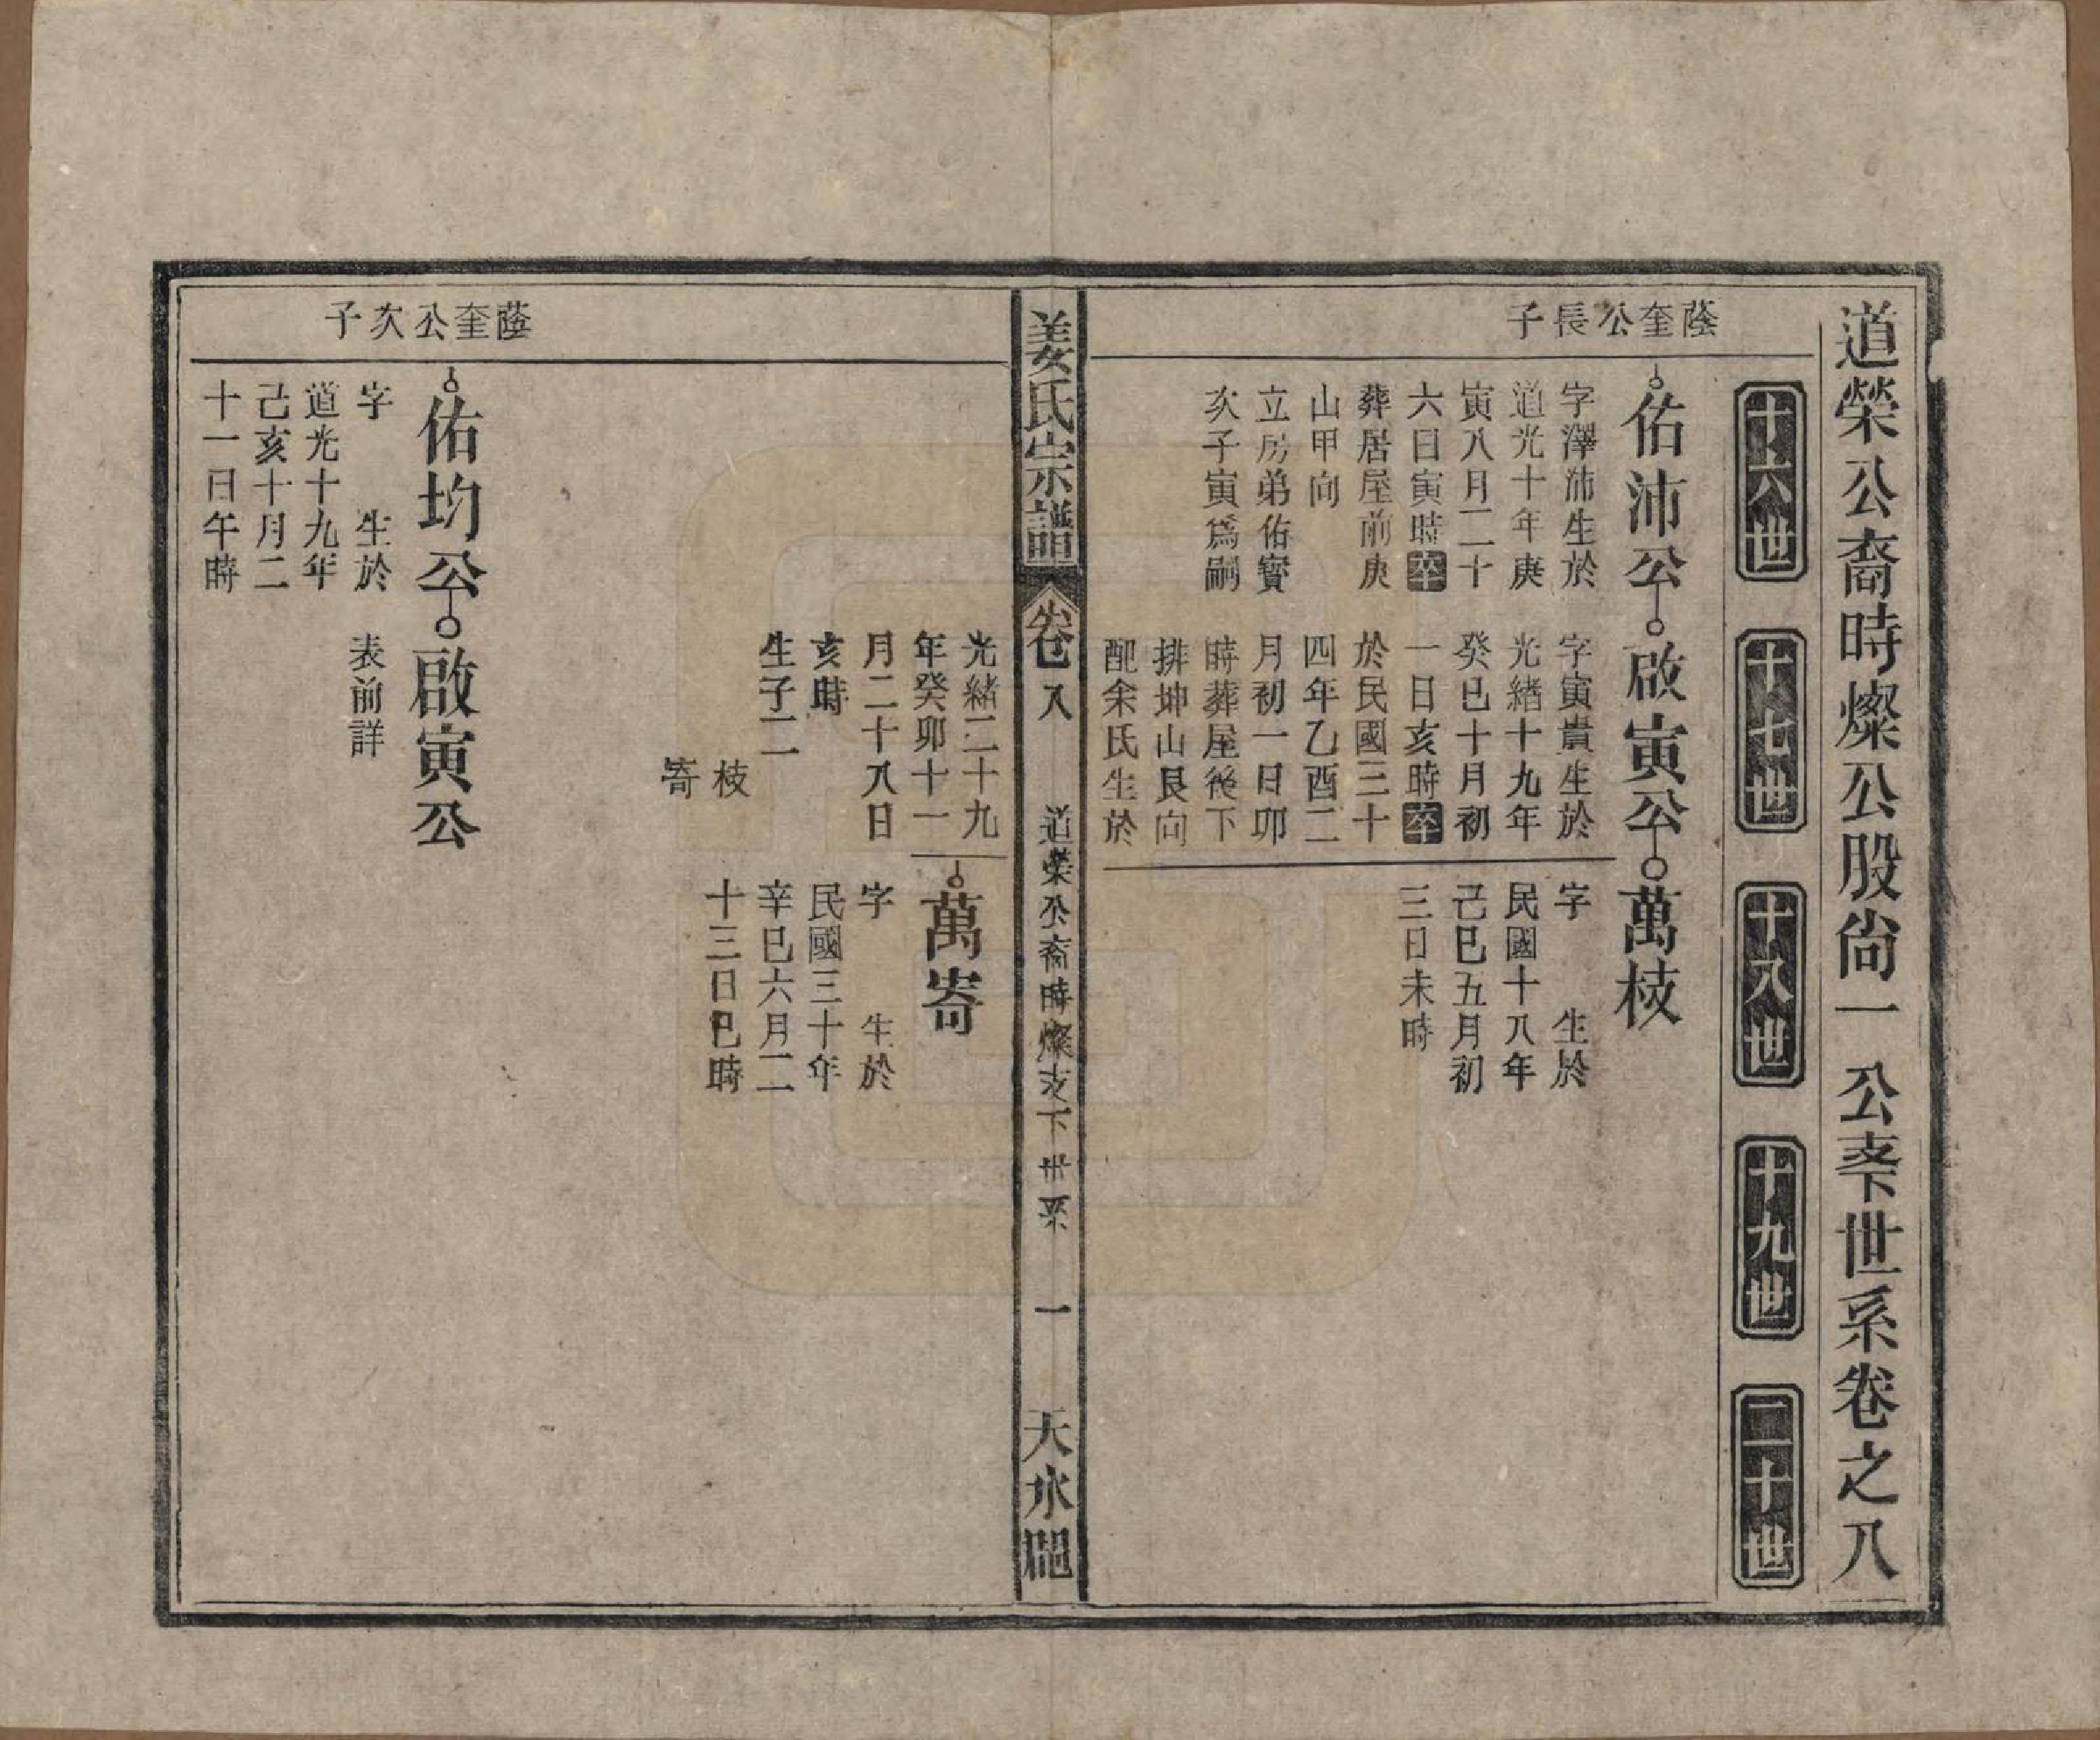 道榮公裔時燦公股尙一公支下世系卷之八
十六世
十七世
十八世
十九世
二十世
蔭奎公長子
佑沛公
字澤沛生於
道光十年庚
寅八月二十
六日寅時卒
葬居屋前庚
山甲向
立房弟佑寳
次子寅爲嗣
啟寅公
字寅貴生於
光緒十九年
癸巳十月初
一日亥時卒
於民國三十
四年乙酉二
月初一日卯
時葬屋後下
排坤山艮向
配余氏生於
萬枝
字　生於
民國十八年
己巳五月初
三日未時
姜氏宗譜
卷八
道榮公裔時燦支下世系
一
天水郡
光緒二十九
年癸卯十一
月二十八日
亥時
生子二
枝
寄
萬寄
字　生於
民國三十年
辛巳六月二
十三日巳時
蔭奎公次子
佑均公
字　生於
道光十九年
己亥十月二
十一日午時
啟寅公
表前詳